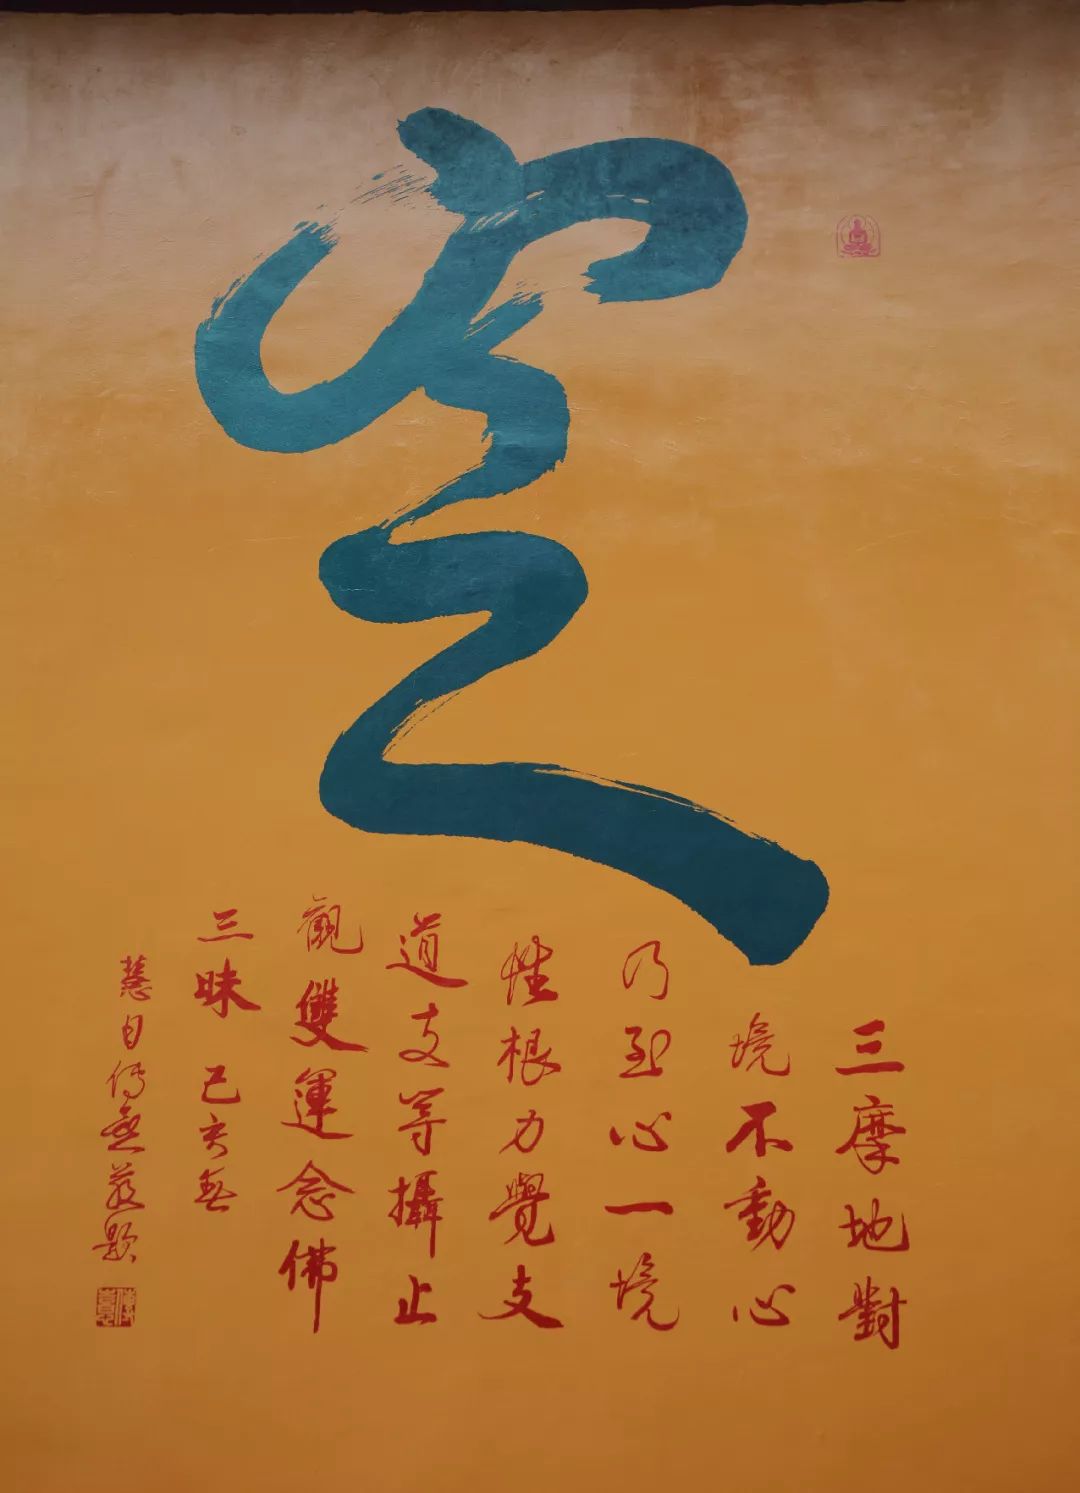 定
三摩地對
境不動心
乃至心一境
性根力覺支
道支等攝止
觀雙運念佛
三昧 己亥
題